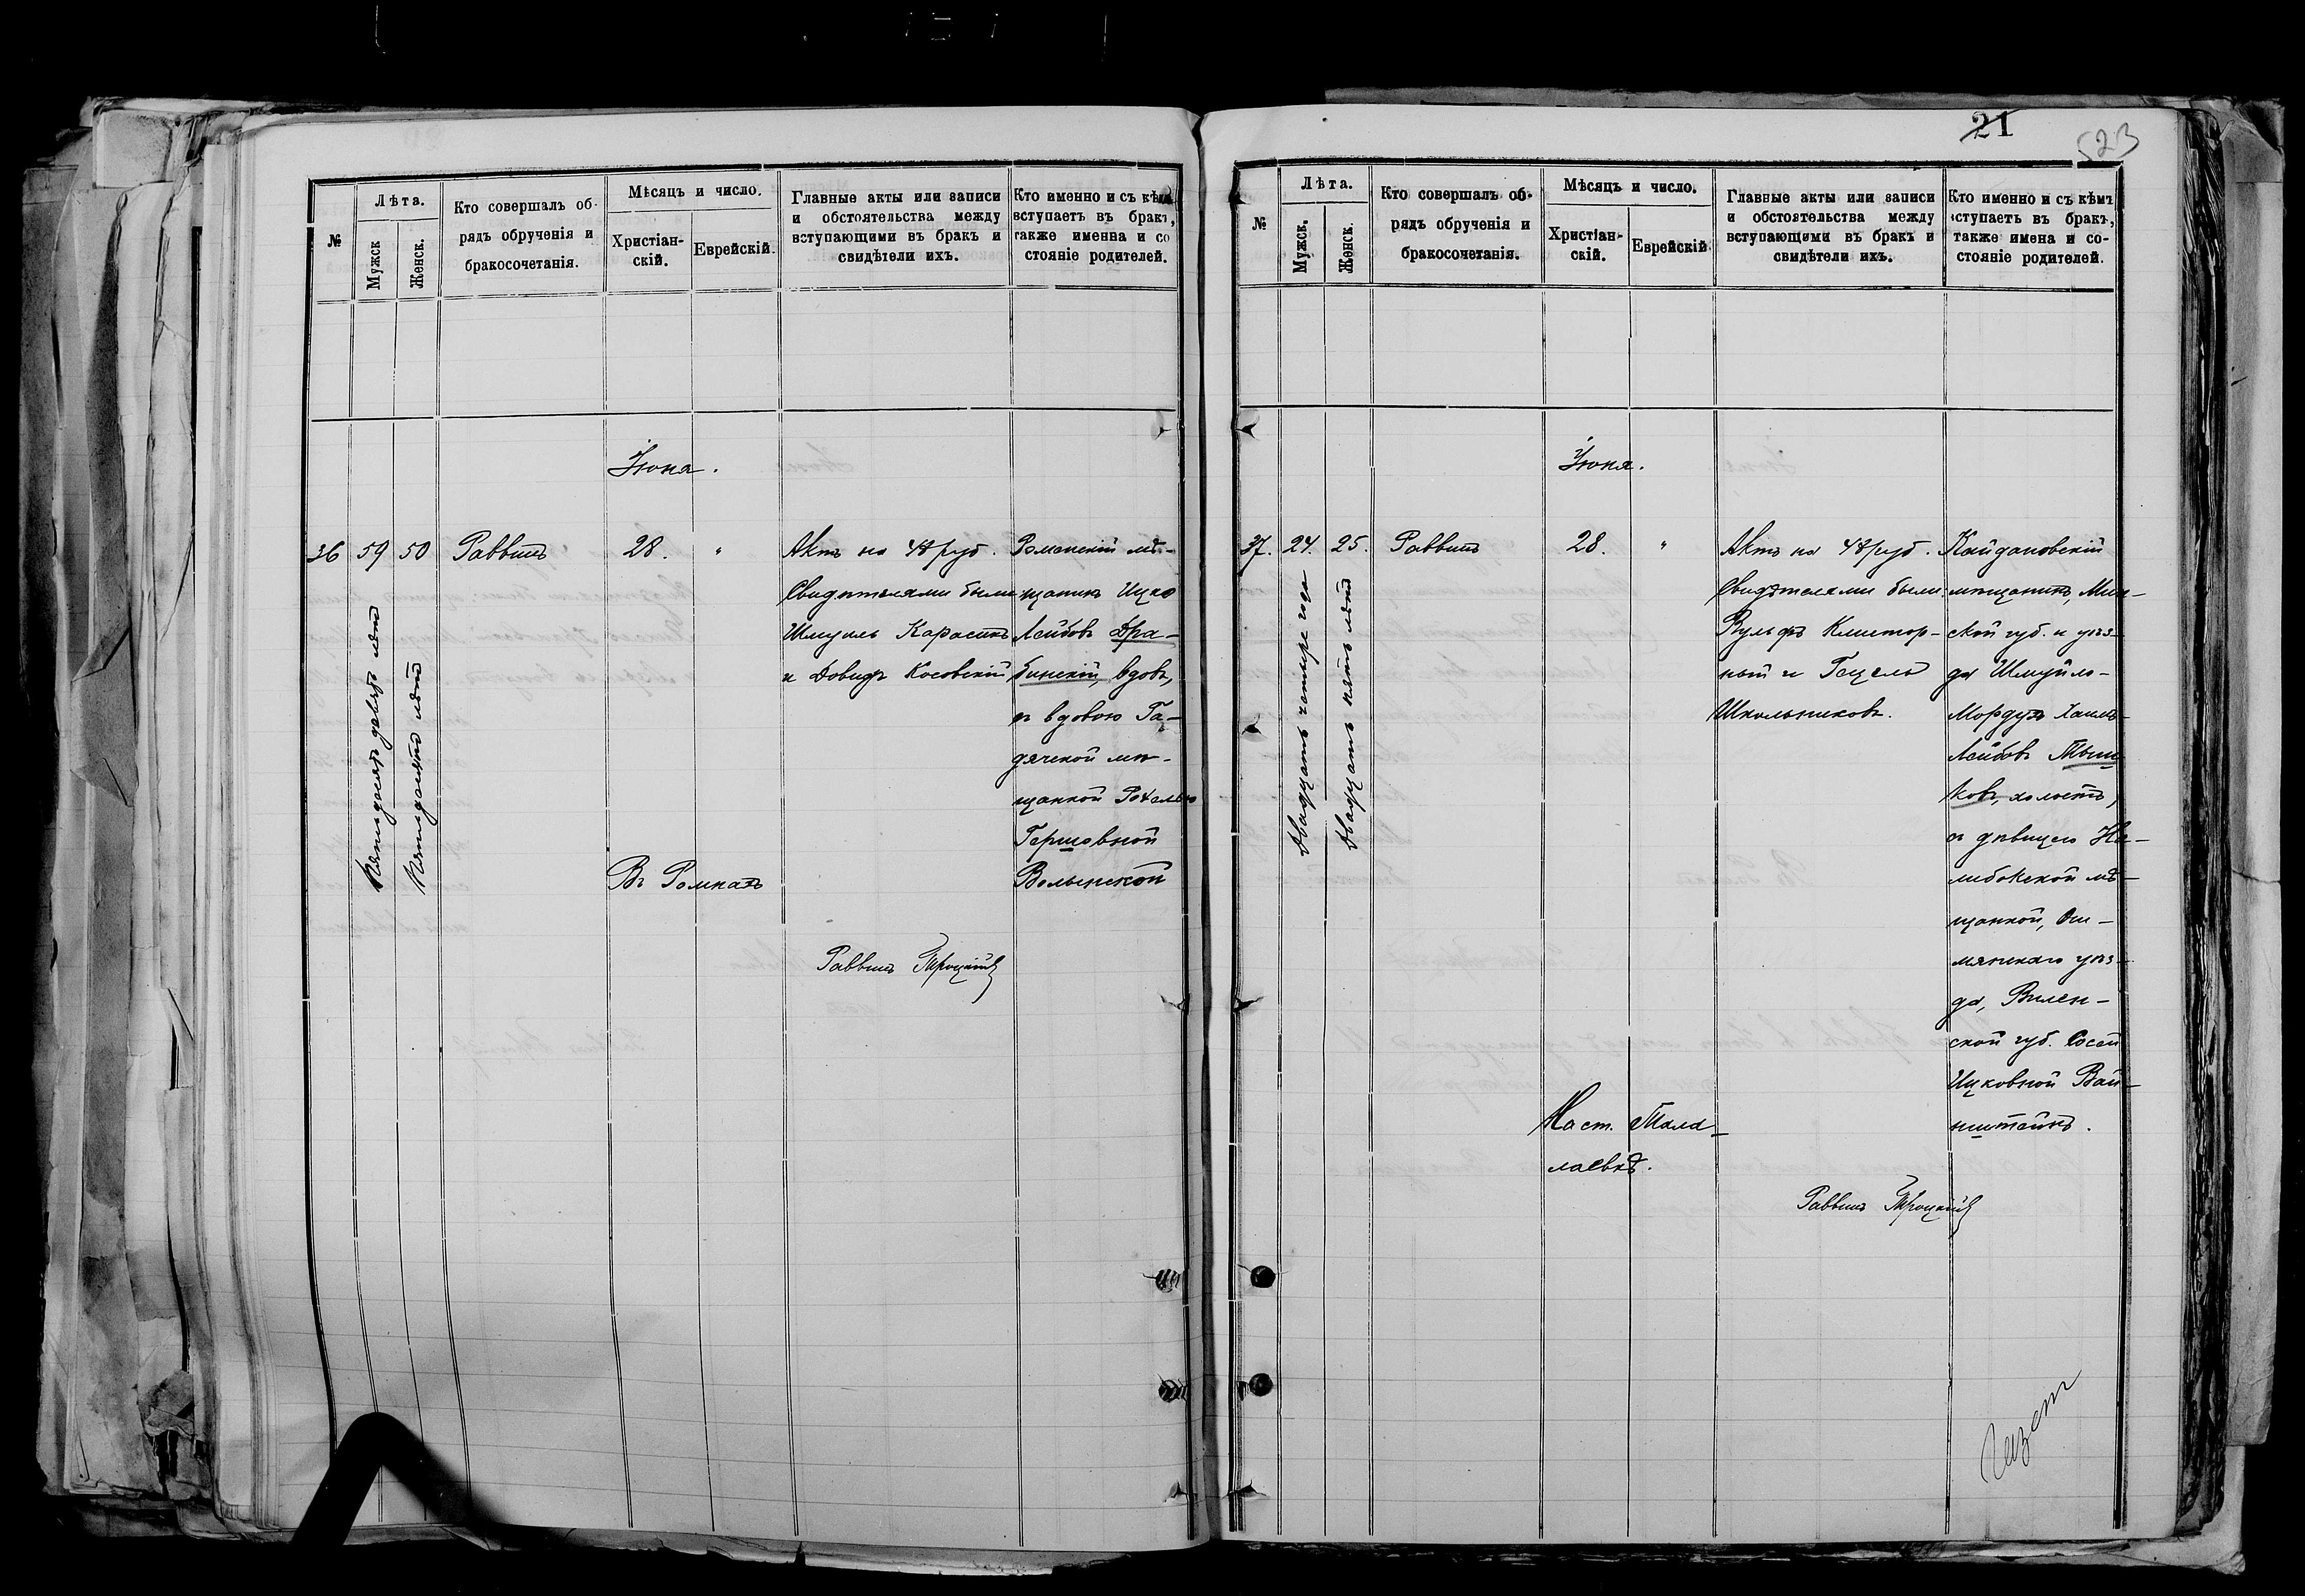 №
Лѣта.
Мужск
Женск.
Кто совершалъ об-
рядъ обрученія и
бракосочетанія.
Мѣсяцъ и число.
Христіан-
скій.
Еврейскій.
Главные акты или записи
и обстоятельства между
вступающими въ бракъ и
свидѣтели ихъ.
Кто именно и съ кѣмъ
вступаетъ въ бракъ,
также именна и со
стояніе родителей.
Іюня.
36
59
50
Пятьдесятъ девять лѣтъ
Пятьдесятъ лѣтъ
Раввинъ
28.
"
Въ Ромнахъ
Актъ на 48 руб.
Свидѣтелями были
Шмуиль Карасикъ
и Довидъ Косовскій
Роменскій мѣ-
щанинъ Ицко
Лейбовъ Дра-
бинскій, вдовъ,
съ вдовою Га-
дячской мѣ-
щанкой Рохелью
Гершовной
Волынской
Раввинъ Троцкій
21
523
№
Лѣта.
Мужск.
Женск.
Кто совершалъ об-
рядъ обрученія и
бракосочетанія.
Мѣсяцъ и число.
Христіан-
скій.
Еврейскій
Главные акты или записи
и обстоятельства между
вступающими въ бракъ и
свидѣтели ихъ.
Кто именно и съ кѣмъ
вступаетъ въ бракъ,
также имена и со-
стояніе родителей.
Іюня.
37.
24.
25.
Двадцать четыре года
Двадцать пять лѣтъ
Раввинъ
28.
"
Маст. Тала-
лаевкѣ.
Актъ на 48 руб.
Свидѣтелями были
Вульфъ
ный и Гецель
Школьниковъ.
Кайдановскій
мѣщанинъ, Мин-
ской губ. и уѣз-
да Шмуйло-
Мордухъ Хаимъ-
Лейбовъ Тыш
ковъ, холостъ,
съ дѣвицею На-
либокской мѣ-
щанкой, Ош-
мянскаго уѣз-
да, Вилен-
ской губ. Сосей
Ицковной Вай-
нштейнъ.
Раввинъ Троцкій